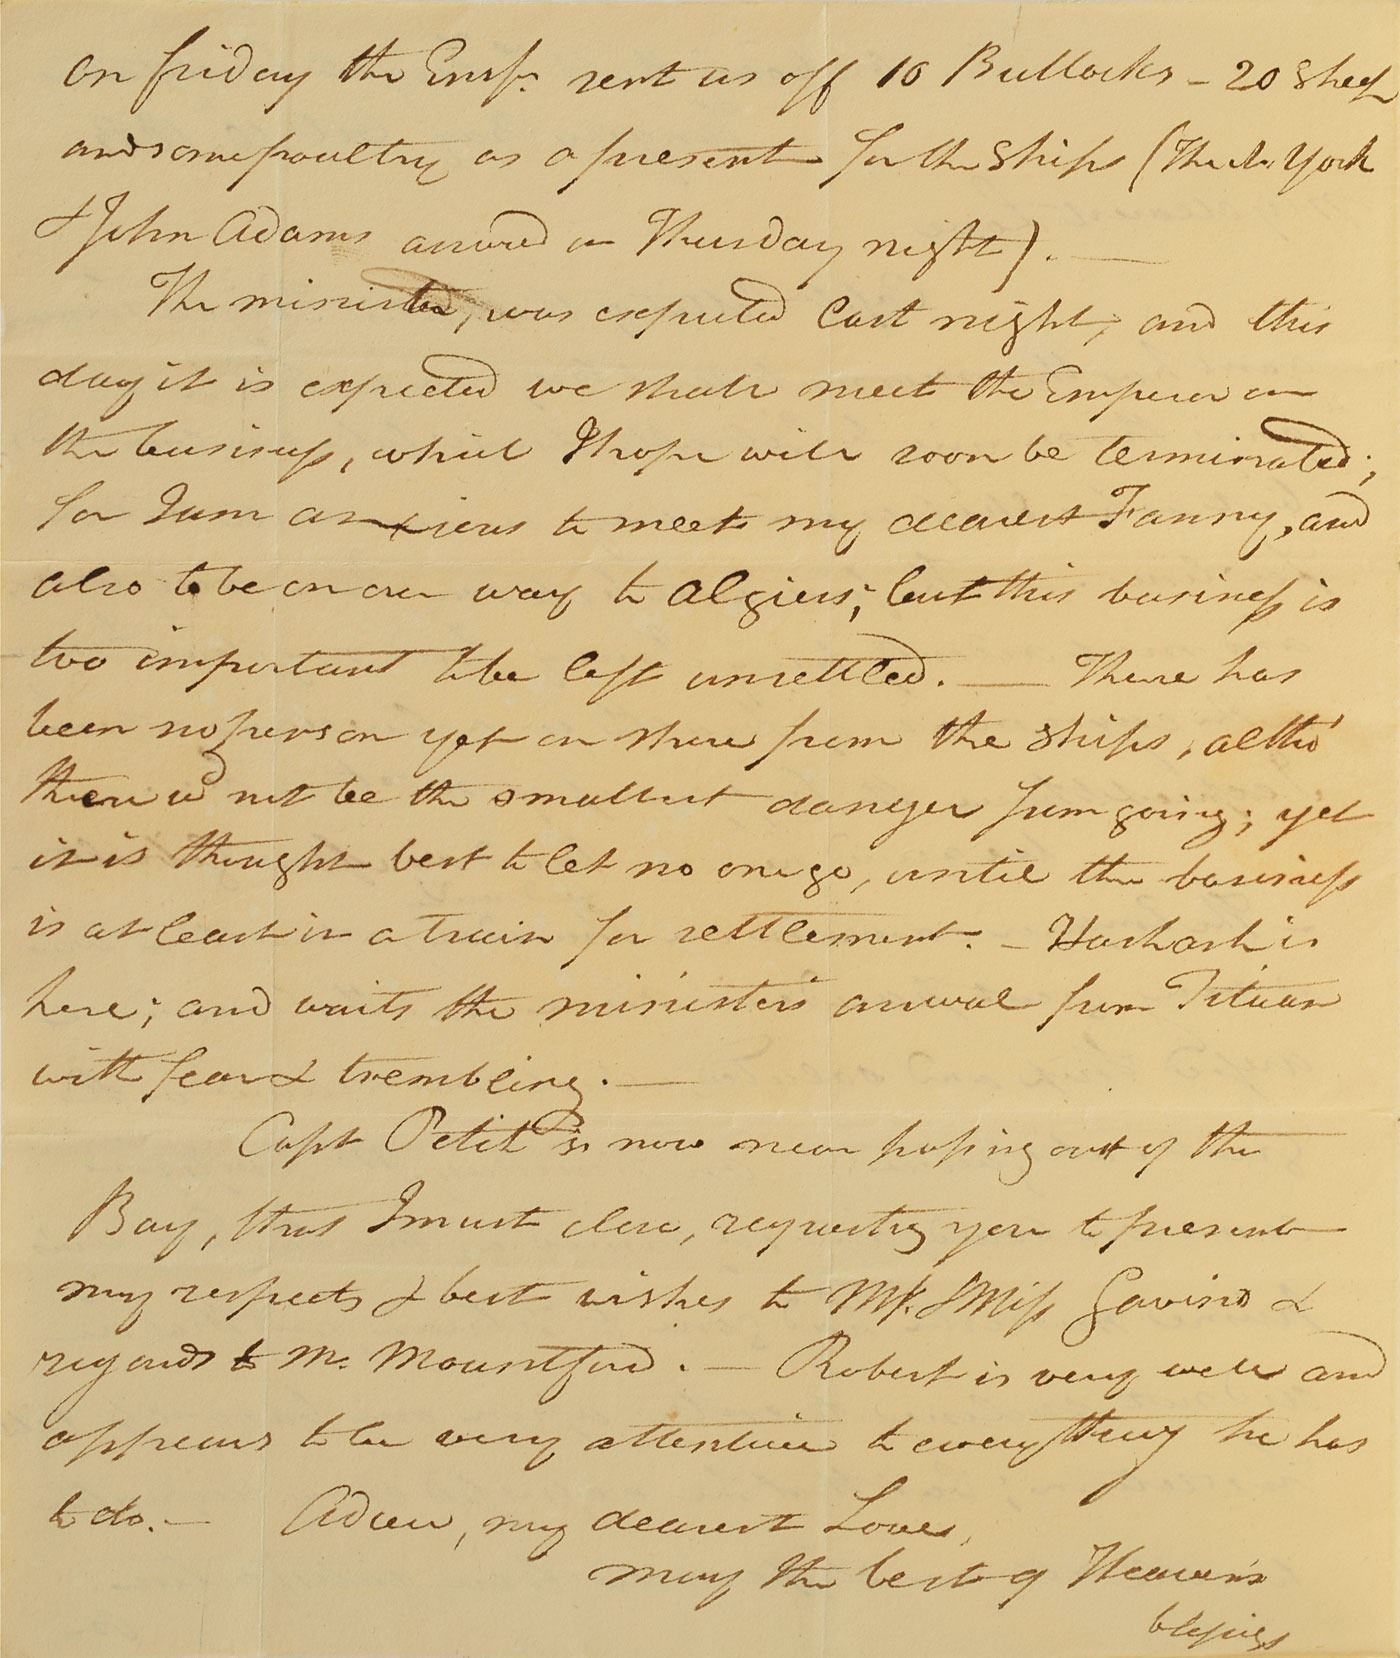 on friday the Empr. sent us off 10 Bullocks – 20 Sheep
and some poultry as a present for the Ships (The N. York
& John Adams arrived on Thursday night). —
The minister, was expected last night, and this
day it is expected we shall meet the Emperor on
the business, which I hope will soon be terminated;
for I am anxious to meet my dearest Fanny, and
also to be on our way to Algiers; but this business is
too important to be left unsettled. — There has
been no person yet on shore from the ships, altho'
there wd not be the smallest danger from going; yet
it is thought best to let no one go, until the business
is at least in a train for settlement. – Hashash is
here; and waits the minister's arrival from Tituan
with fear & trembling. —
Capt Petit is now near passing out of the
Bay, thus I must close, requestg you to present
my respects & best wishes to Mr. & Miss Gavino &
regards to Mr. Mountford. — Robert is very well and
appears to be very attentive to every thing he has
to do. — Adieu, my dearest Love,
may the best of Heaven's
blessings